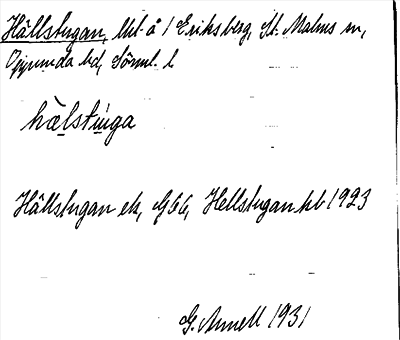 Hällstugan, Utl. å 1 Eriksberg, St. Malms sn,
Oppunda hd, Sörml. l
hälstuga
Hällstugan ek, G 66, Hellstugan kb 1923
G. Annell 1931